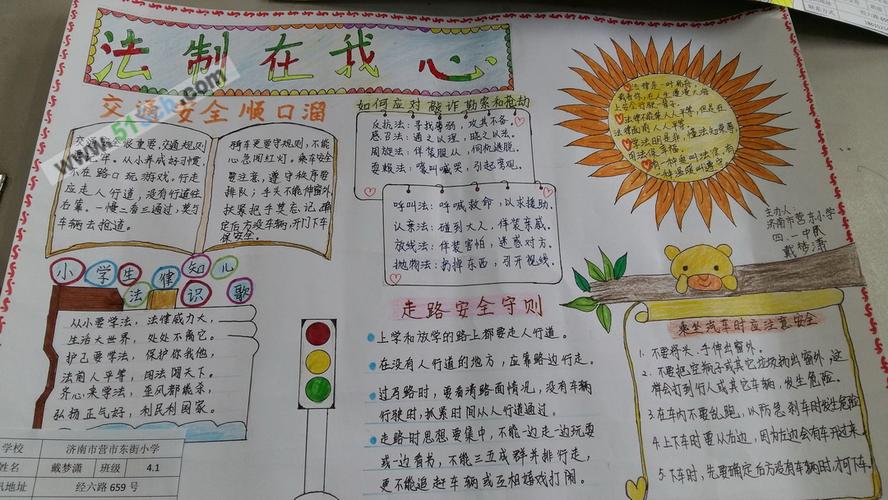 法制在我心
交通安全顺口溜
规则
年。从小养成好习惯,
不在路口玩游戏。行走
应走人行道,没有行道往
右靠。一慢二看三通过,莫与
车辆去抢道。
骑车更要守规则,不能
心急闯红灯。乘车安全
要注意,遵守秩序要
排队;手头不能伸窗外,
扶紧把手莫忘记。确
定后方没车辆,开门下车
保安全。
如何应对敲诈勒索和抢劫
反抗法:寻找薄弱,攻其不备。
感召法:通之以理,晓之以法。
周旋法:佯装服从,伺机逃脱。
耍赖法:嚎叫喊哭,引起旁观。
呼叫法:呼喊救命,以求援助。
认亲法:碰到大人,佯装亲戚。
放线法:佯装害怕,迷惑对方。
抛物法:扔掉东西,引开视线。
主办人
济南市营东小学
四.一中队
戴梦潇
小学生健知儿
法识歌
从小要学法,法律威力大,
生活大世界,处处不离它。
护己要学法,保护你我他,
法前人平等,用法闯天下。
齐心来学法,歪风都能杀,
弘扬正气好,利民利国家。
走路安全守则
上学和放学的路上都要走人行道。
在没有人行道的地方,应靠路边行走。
过马路时,要看清路面情况,没有车辆
行驶时,抓紧时间从人行道通过。
走路时思想要集中,不能一边走一边玩耍
或一边看书,不能三五成群并排行走,
更不能追赶车辆或互相嬉戏打闹。
乘坐汽车时应注意安全
1.不要将头、手伸出窗外。
2.不要把空瓶子或其它垃圾扔出窗外,这
样会打到行人或其它车辆,发生危险。
3.在车内不要乱跑,以防急刹车时发生危险
4.上下车时要从右边,因为左边会有车开过来.
5.下车时,先要确定后方没有车辆时,才可下车.
学校 济南市营市东街小学
姓名 戴梦潇 班级 4.1
讯地址 经六路659号